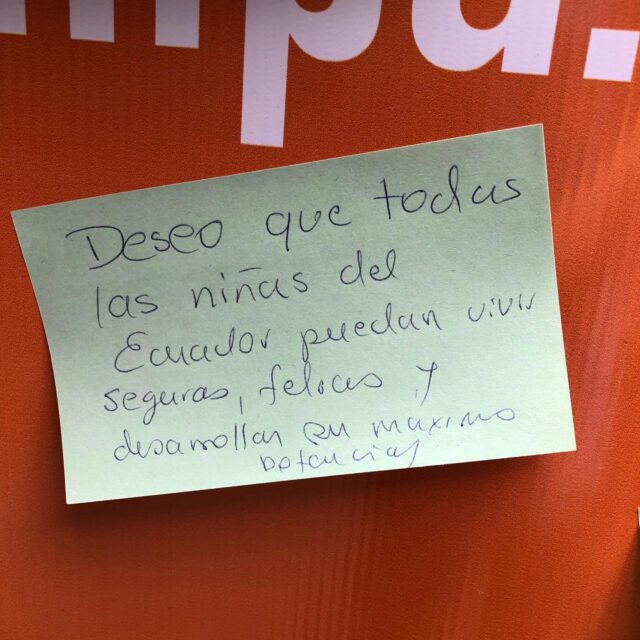 mpa.
Deseo que todas
las niñas del
Ecuador puedan vivir
seguras, felices y
desarrollar su maximo
potencial